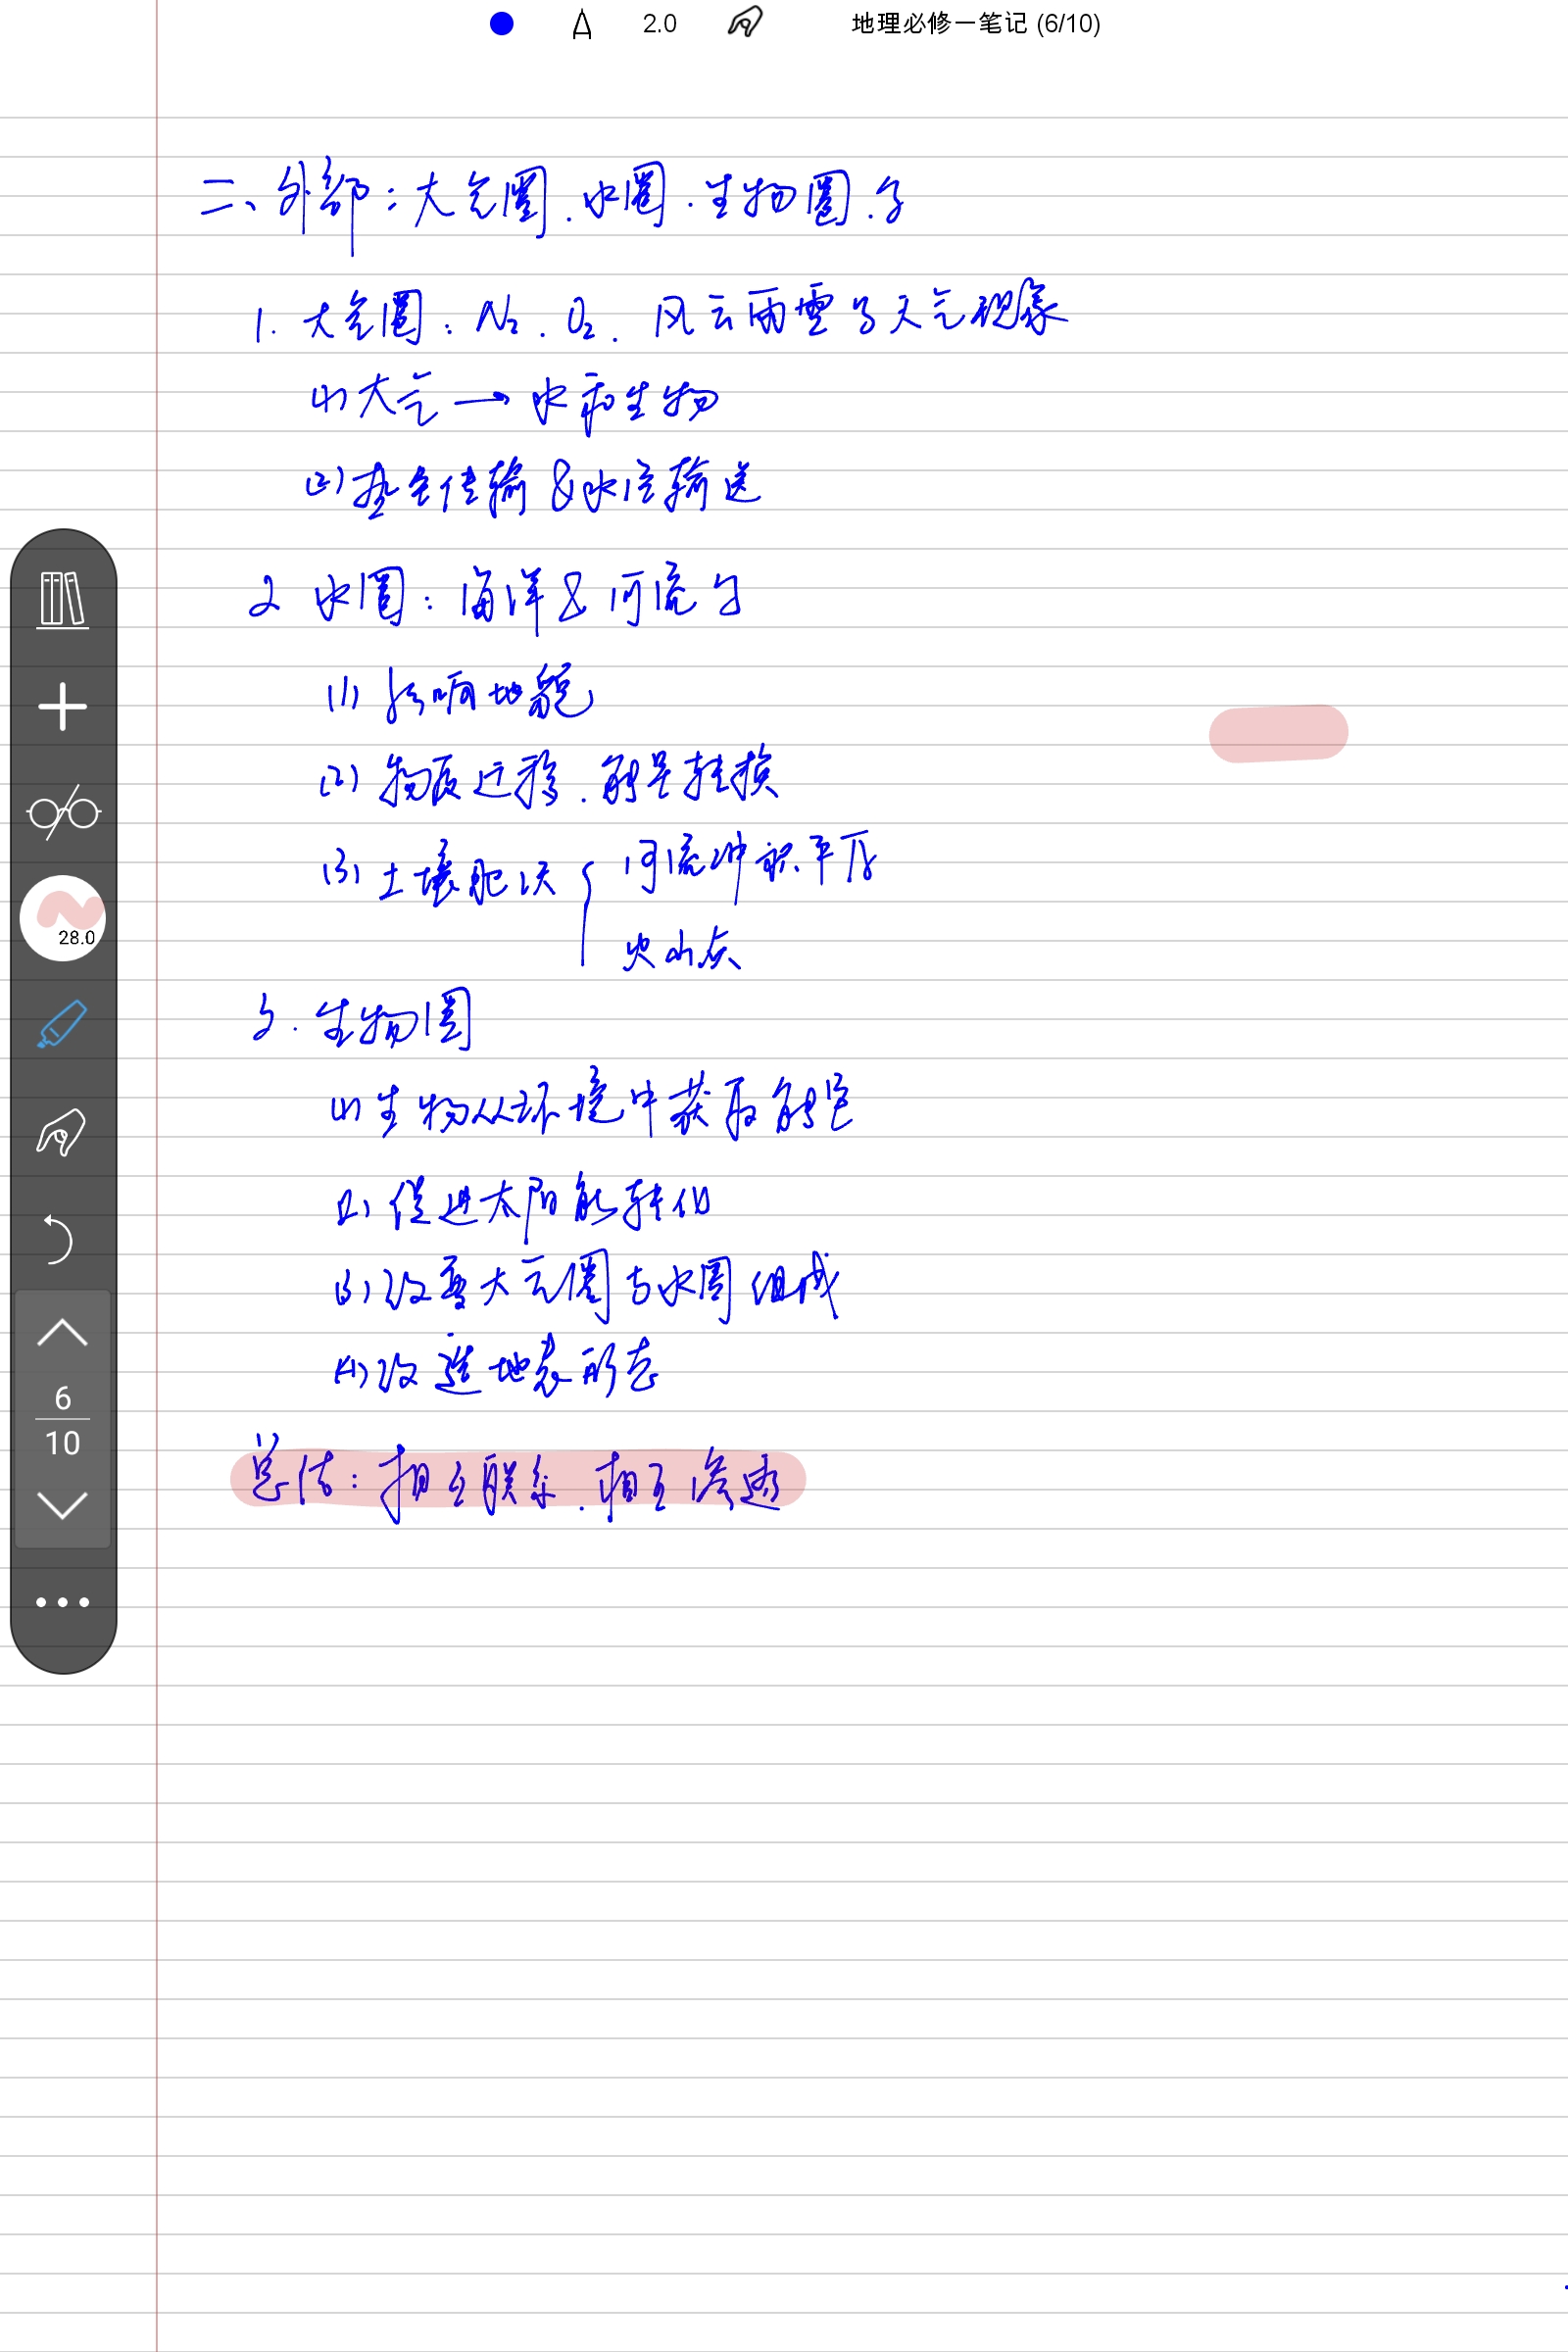 2.0 地理必修一笔记 (6/10)
二、外部：大气圈、水圈、生物圈、等
1. 大气圈：N₂、O₂、风云雨雪等天气现象
(1) 大气 → 水和生物
(2) 热量传输&水汽输送
2 水圈：海洋&河流等
(1) 影响地貌
(2) 物质迁移、能量转换
(3) 土壤肥沃 { 河流冲积平原
火山灰
28.0
3. 生物圈
(1) 生物从环境中获取能量
(2) 促进太阳能转化
(3) 改变大气圈与水圈组成
(4) 改造地表形态
6
10
总结：相互联系、相互渗透